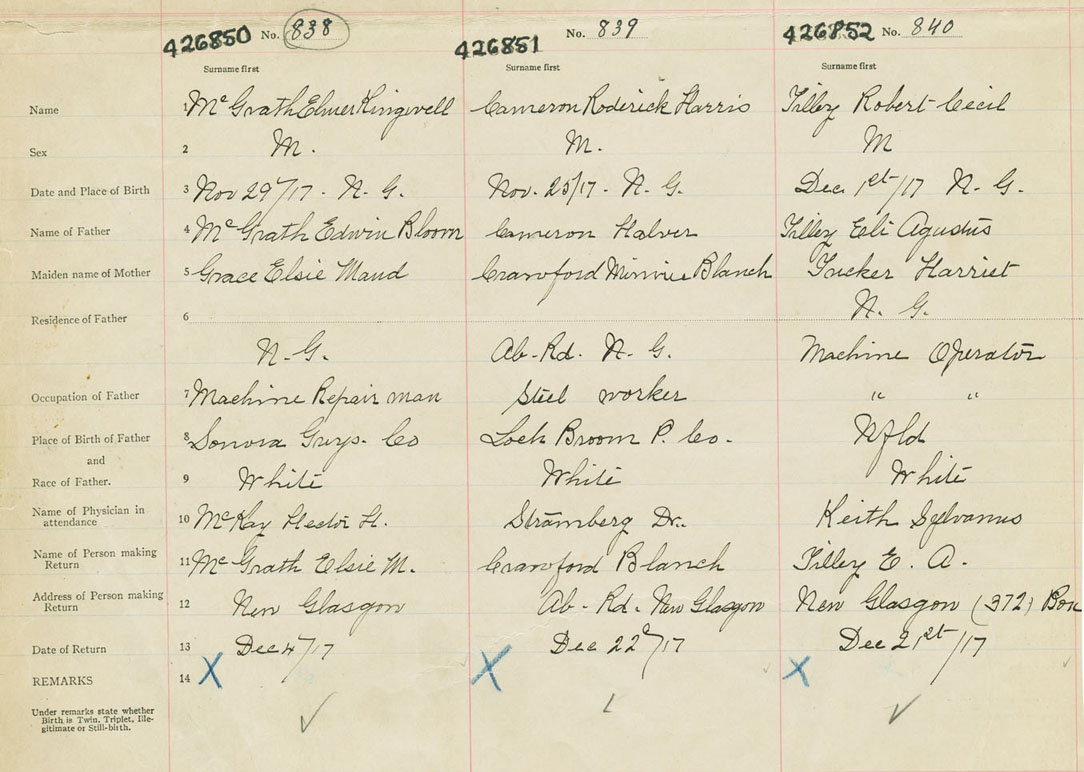 426850 No. 838 426851 No. 839 426852 No. 840
Surname first Surname first Surname first
Name 1 McGrath Elmer Kingwell Cameron Roderick Harris Tilley Robert Cecil
Sex 2 M. M. M
Date and Place of Birth 3 Nov 29/17. N. G. Nov. 25/17. N. G. Dec 1st/17 N. G.
Name of Father 4 McGrath Edwin Bloom Cameron Halver Tilley Eli Agustus
Maiden name of Mother 5 Grace Elsie Maud Crawford Minnie Blanch Tucker Harriet
Residence of Father 6 N. G.
N. G. Ab. Rd. N. G. Machine Operator
Occupation of Father 7 Machine Repair man Steel worker " "
Place of Birth of Father 8 Sonora Guys. Co Loch Broom P. Co. Nfld
and
Race of Father. 9 White White White
Name of Physician in
attendance 10 McKay Hector H. Stramberg Dr. Keith Sylvanus
Name of Person making
Return 11 McGrath Elsie M. Crawford Blanch Tilley E. A.
Address of Person making
Return 12 New Glasgow Ab. Rd. New Glasgow New Glasgow (372) Box
Date of Return 13 Dec 4/17 Dec 22/17 Dec 21st/17
REMARKS 14 X X X
Under remarks state whether
Birth is Twin, Triplet, Ille-
gitimate or Still-birth.